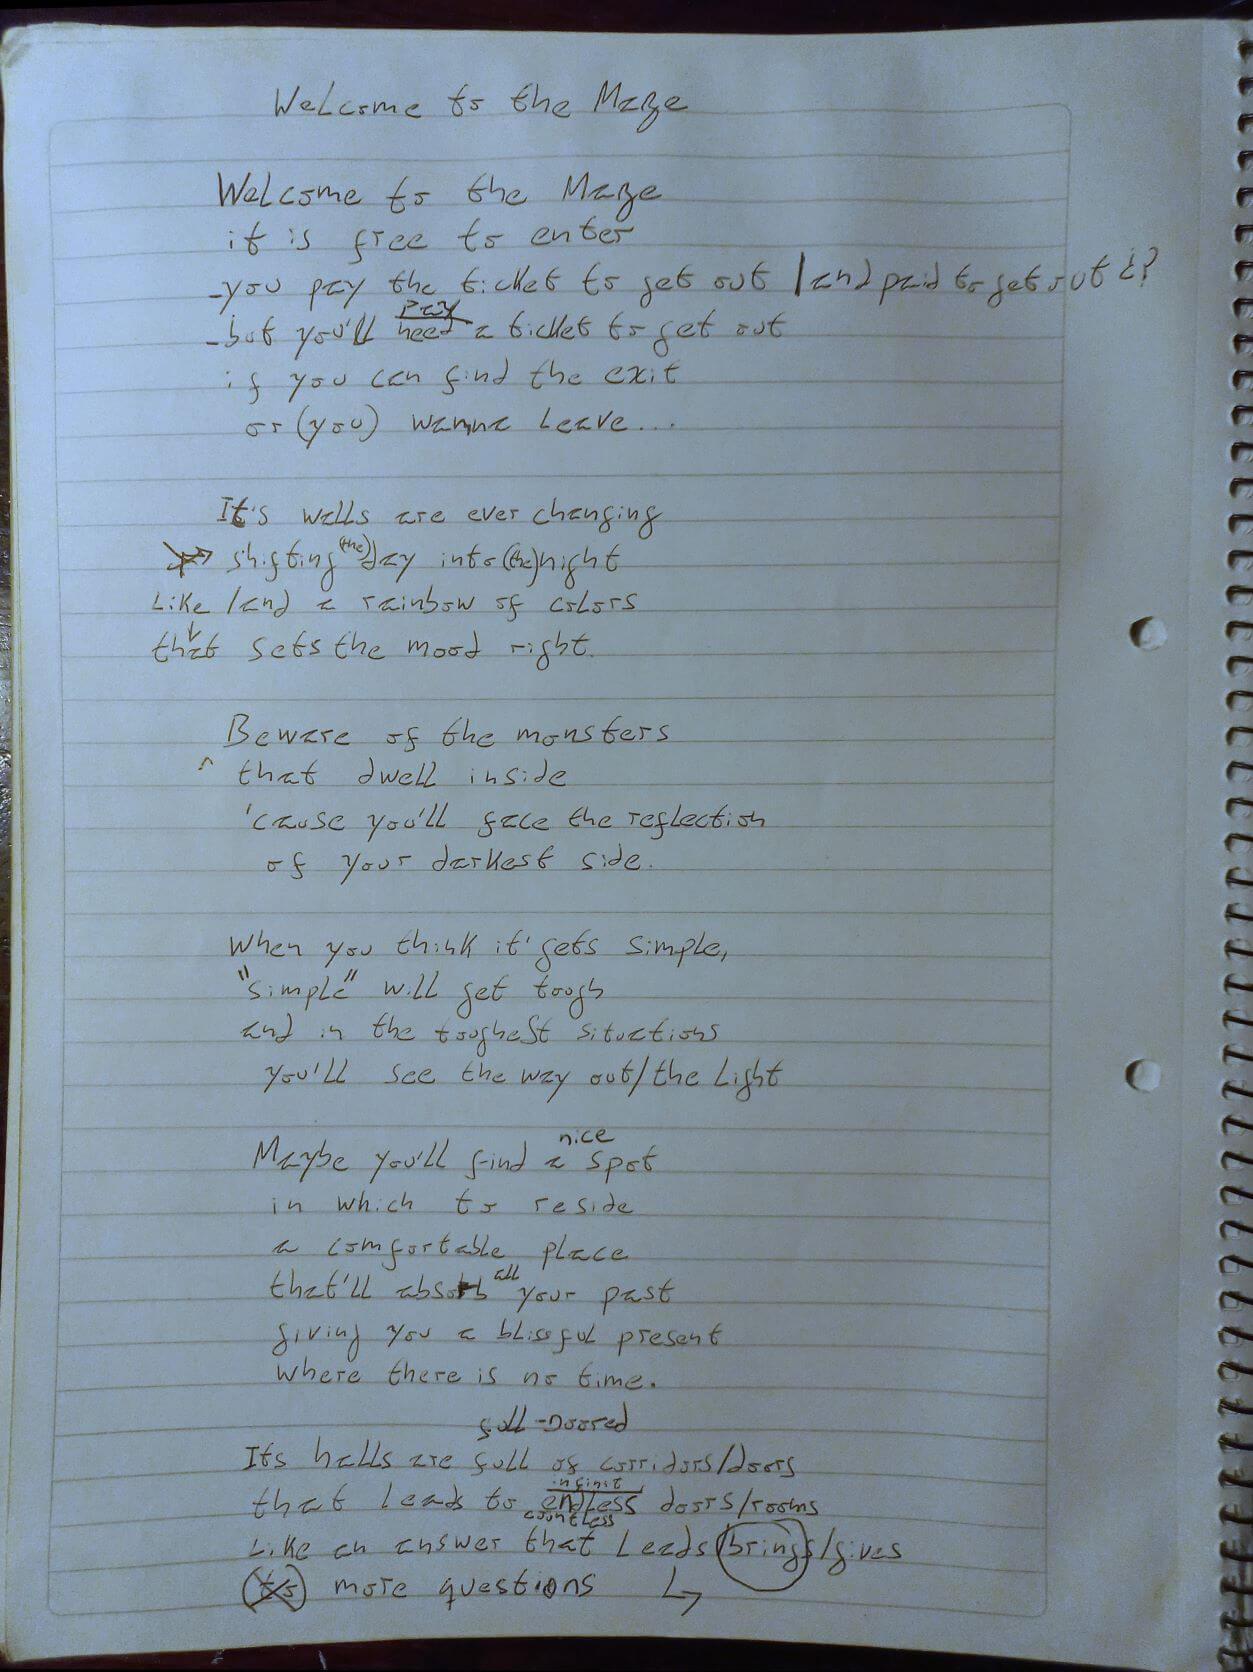 Welcome to the Maze
Welcome to the Maze
it is free to enter
-you pay the ticket to get out / and paid to get out ¿?
pay
-but you'll need a ticket to get out
if you can find the exit
or (you) wanna leave...
It's walls are ever changing
shifting (the) day into (the) night
Like / and a rainbow of colors
that sets the mood right.
Beware of the monsters
that dwell inside
'cause you'll face the reflection
of your darkest side.
When you think it' gets simple,
"simple" will get tough
and in the toughest situations
you'll see the way out/the Light
nice
Maybe you'll find a spot
in which to reside
a comfortable place
that'll absorb all your past
giving you a blissful present
where there is no time.
full-Doored
Its halls are full of corridors/doors
infinit
that leads to endless doors/rooms
countless
Like an answer that leads/brings/gives
to more questions